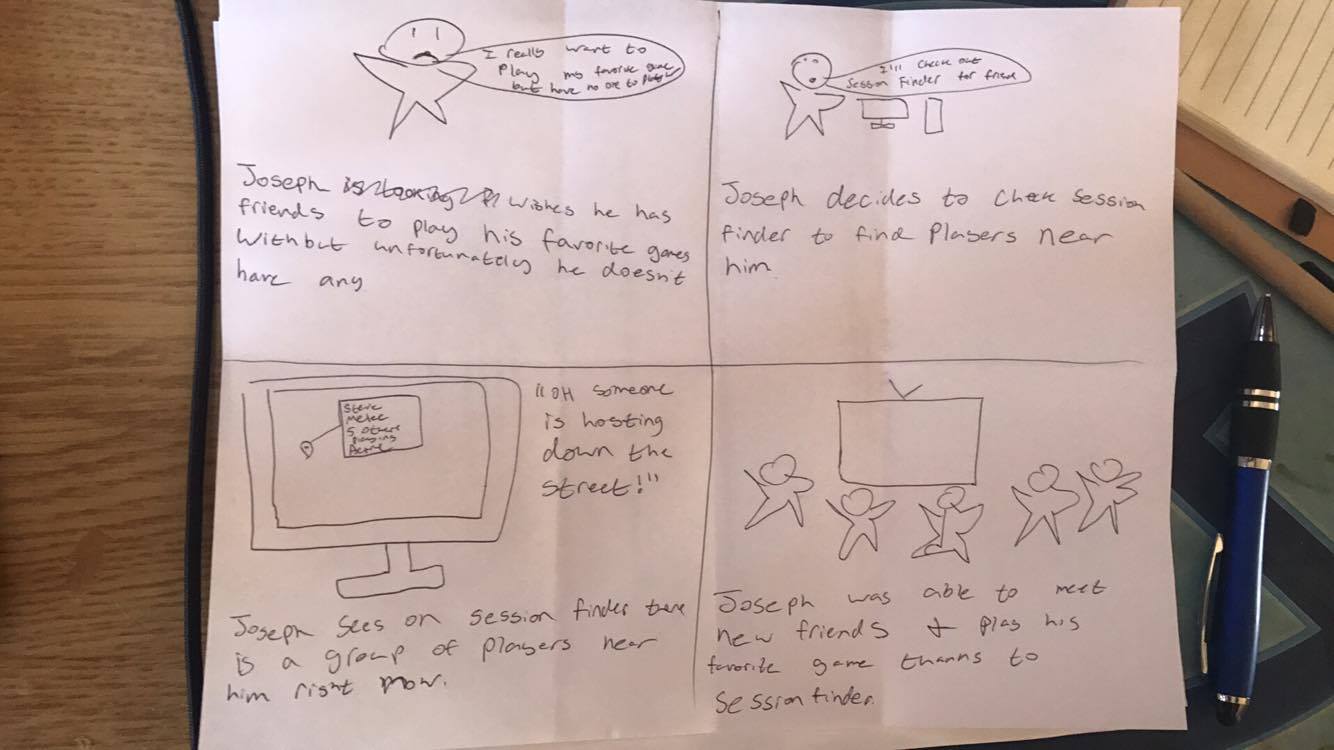 I really want to
Play my favorite game
but have no one to play
Joseph wishes he has
friends to play his favorite games
With but unfortunately he doesn't
have any
I'll check out
Session Finder for friend
Joseph decides to check session
finder to find Players near
him
Steve
5 others
playing
"OH someone
is hosting
down the
street!"
Joseph sees on session finder there
is a group of players near
him right now.
Joseph was able to meet
new friends + play his
favorite game thanks to
Session finder.